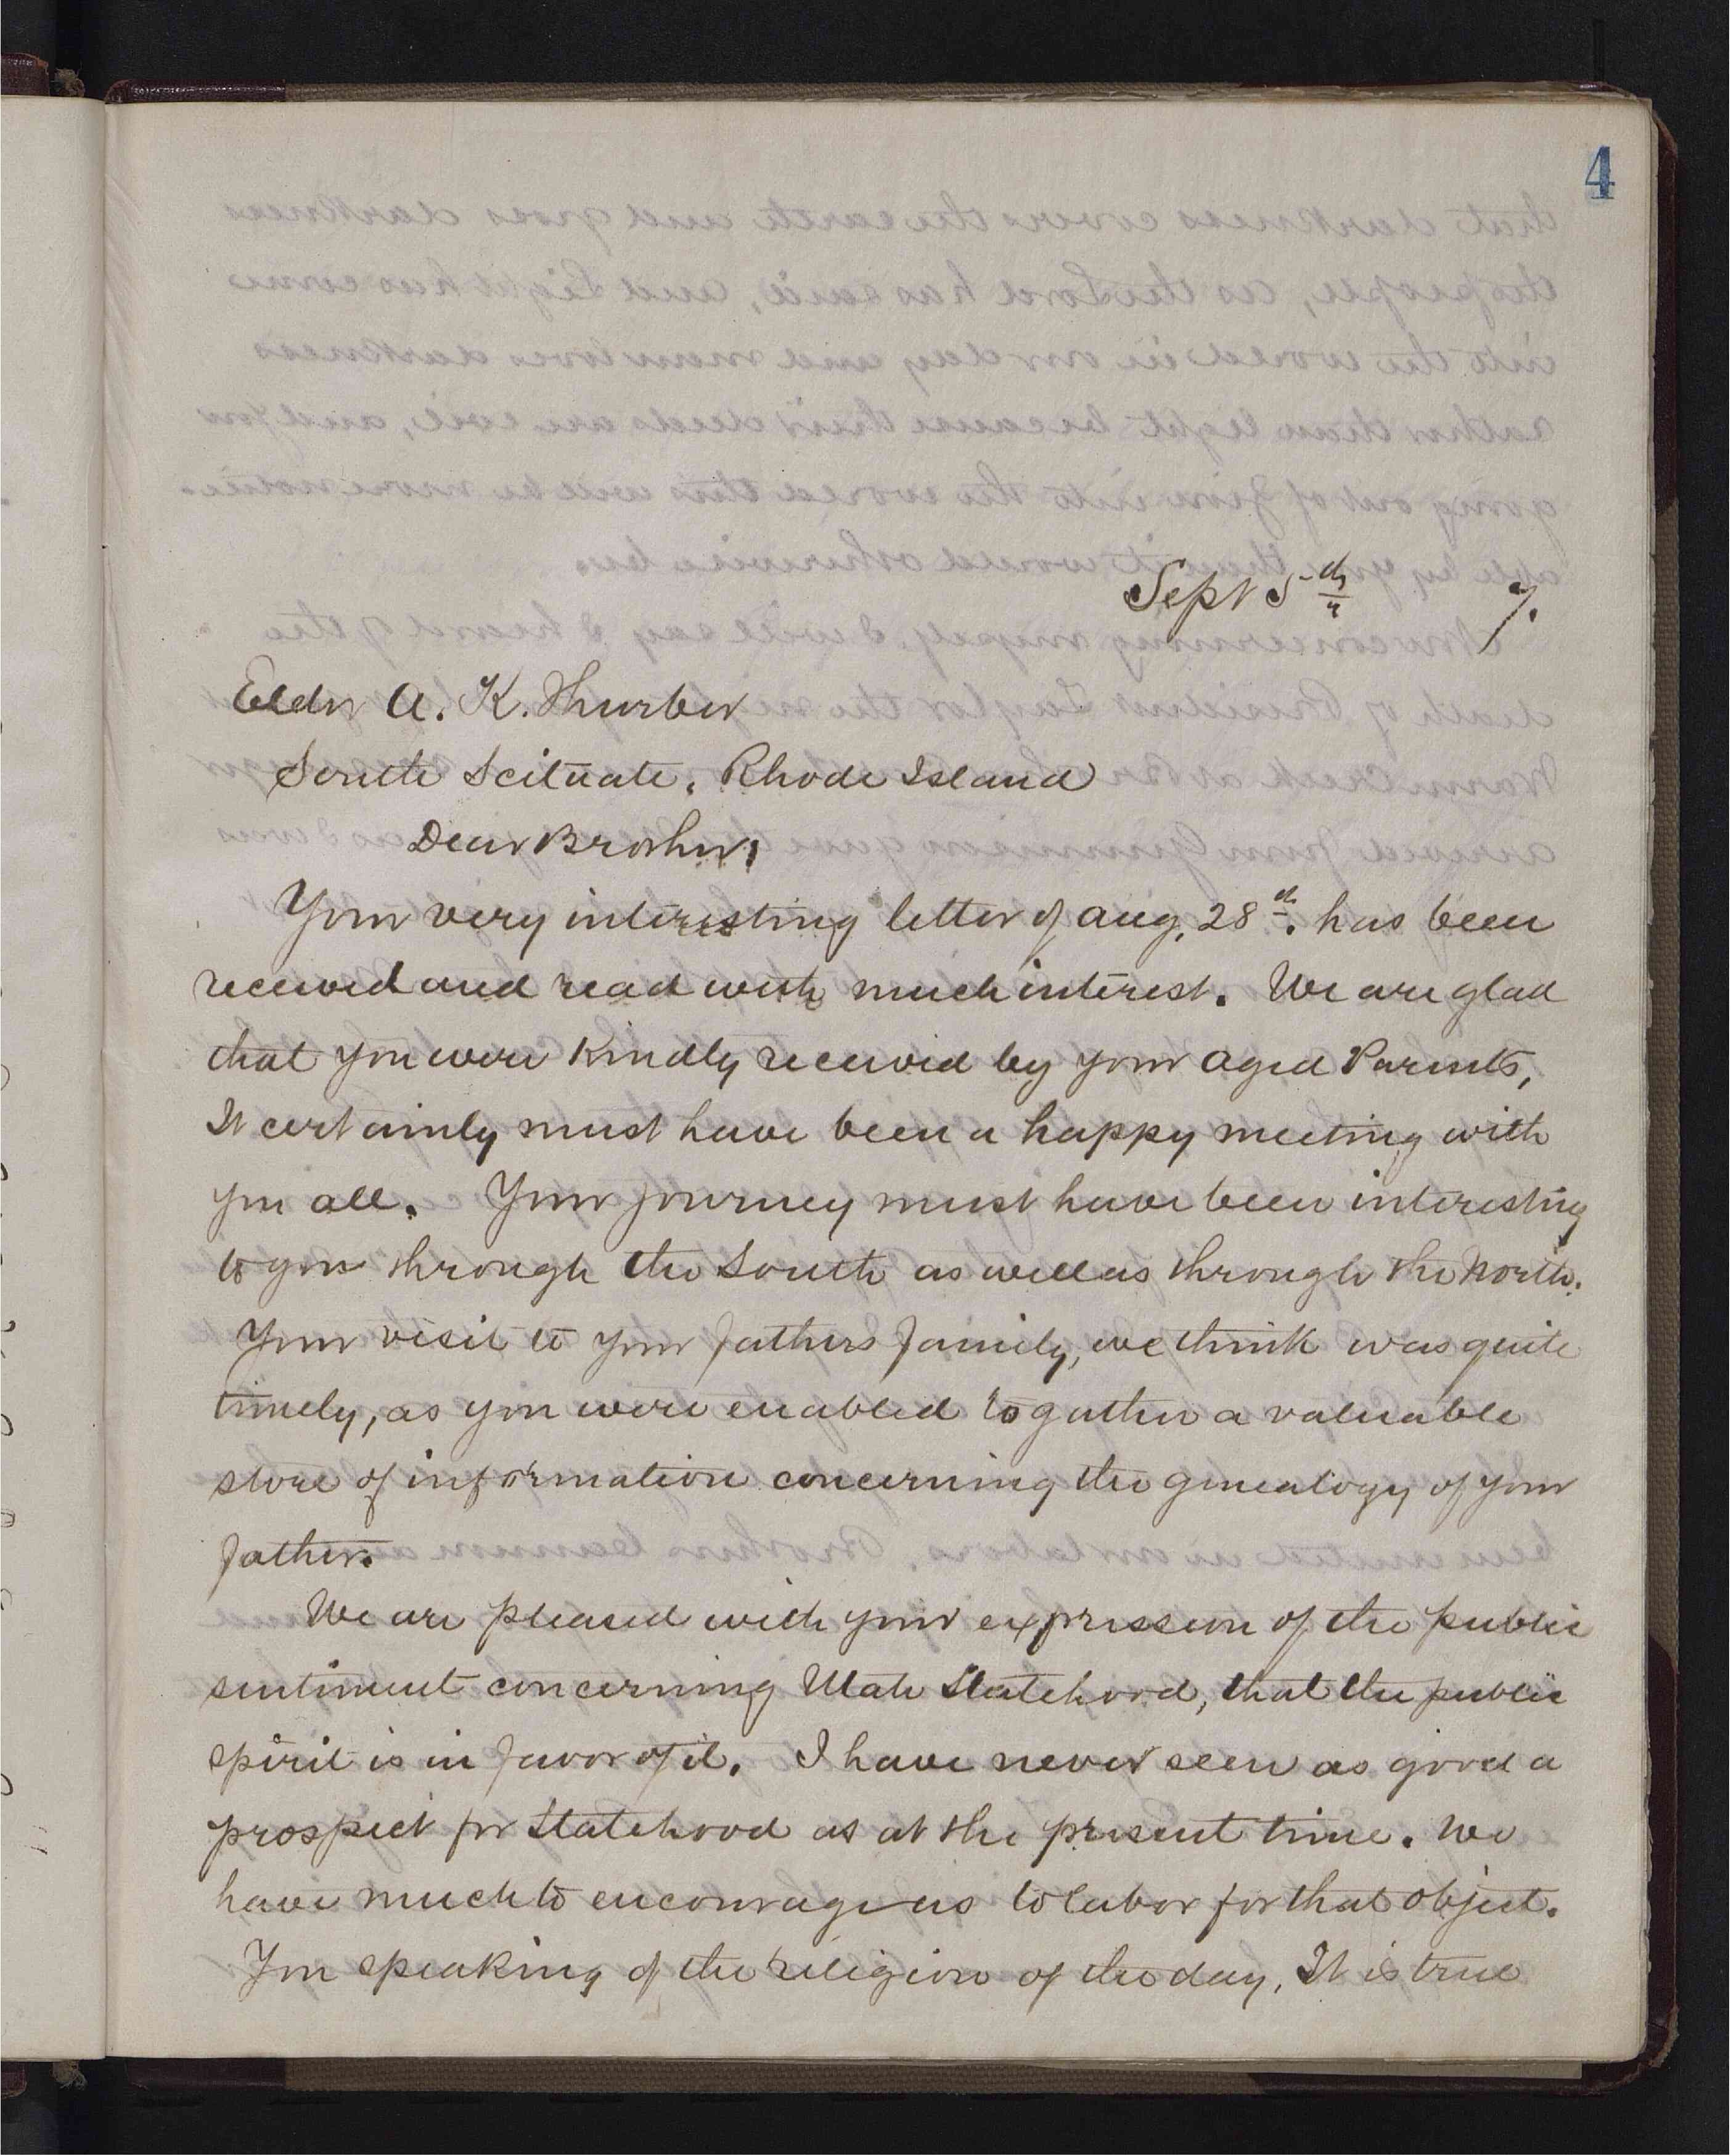 4
Sept 5th 7.
Elder A. K. Thurber
South Scituate, Rhode Island
Dear Brother,
Your very interesting letter of Aug, 28th. has been
received and read with much interest. We are glad
that you were Kindly received by your aged Parents,
It certainly must have been a happy meeting with
you all. Your journey must have been interesting
to you through the South as well as through the North.
Your visit to your fathers family, we think was quite
timely, as you were enabled to gather a valuable
store of information concerning the genealogy of your
fathers.
We are pleased with your expression of the public
sentiment concerning Utah Statehood, that the public
spirit is in favor of it. I have never seen as good a
prospect for Statehood as at the present time. We
have much to encourage us to labor for that object.
You speaking of the religion of the day, It is true